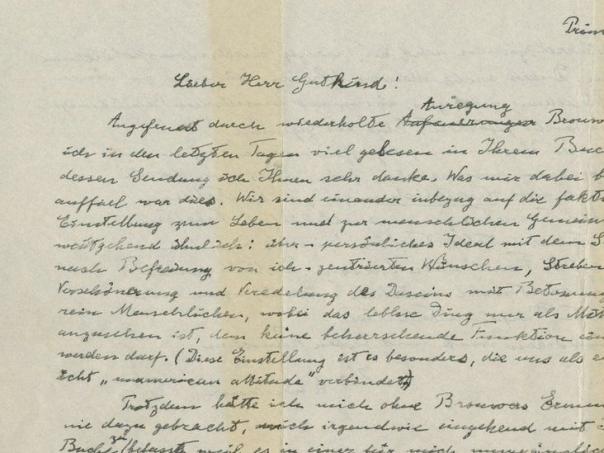 Prin
Lieber Herr Gutkind!
Anregung
Angefeuert durch wiederholte Anfeuerungen Brouw
ich in den letzten Tagen viel gelesen in Ihrem Buc
dessen Sendung ich Ihnen sehr danke. Was mir dabei b
auffiel war dies. Wir sind einander inbezug auf die fakt
Einstellung zum Leben und zur menschlichen Gemein
weitgehend ähnlich: über-persönliches Ideal mit dem S
nach Befreiung von ich-zentrierten Wünschen, Streben
Verschönerung und Veredelung des Daseins mit Betonun
rein Menschlichen, wobei das leblose Ding nur als Mitt
anzusehen ist, dem keine beherrschende Funktion ein
werden darf. (Diese Einstellung ist es besonders, die uns als e
echt „unamerican attitude" verbindet)
Trotzdem hätte ich mich ohne Brouwers Ermun
nie dazu gebracht, mich irgendwie eingehend mit
Buche zu befassen, weil es in einer für mich